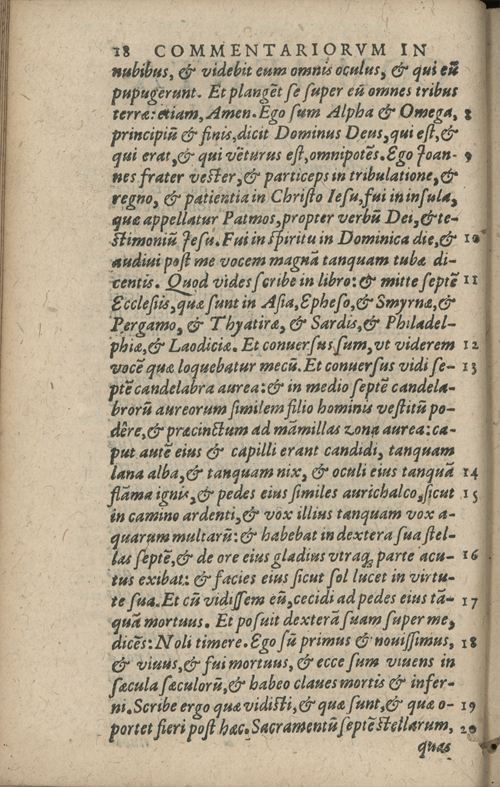 18 COMMENTARIORVM IN
nubibus, & videbit eum omnis oculus, & qui eū
pupugerunt. Et plangēt se super eū omnes tribus
terræ: etiam, Amen. Ego sum Alpha & Omega, 8
principiū & finis, dicit Dominus Deus, qui est, &
qui erat, & qui vēturus est, omnipotēs. Ego Joan- 9
nes frater vester, & particeps in tribulatione, &
regno, & patientia in Christo Iesu, fui in insula,
quæ appellatur Patmos, propter verbū Dei, & te-
stimoniū Jesu. Fui in spiritu in Dominica die, & 10
audiui post me vocem magnā tanquam tubæ di-
centis. Quod vides scribe in libro: & mitte septē 11
Ecclesiis, quæ sunt in Asia, Epheso, & Smyrnæ, &
Pergamo, & Thyatiræ, & Sardis, & Philadel-
phiæ, & Laodiciæ. Et conuersus sum, vt viderem 12
vocē quæ loquebatur mecū. Et conuersus vidi se- 13
ptē candelabra aurea: & in medio septē candela-
brorū aureorum similem filio hominis vestitū po-
dêre, & præcinctum ad māmillas zona aurea: ca-
put autē eius & capilli erant candidi, tanquam
lana alba, & tanquam nix, & oculi eius tanquā 14
flāma ignis, & pedes eius similes aurichalco, sicut 15
in camino ardenti, & vox illius tanquam vox a-
quarum multarū: & habebat in dextera sua stel-
las septē, & de ore eius gladius vtraq; parte acu- 16
tus exibat: & facies eius sicut sol lucet in virtu-
te sua. Et cū vidissem eū, cecidi ad pedes eius tā- 17
quā mortuus. Et posuit dexterā suam super me,
dicēs: Noli timere. Ego sū primus & nouissimus, 18
& viuus, & fui mortuus, & ecce sum viuens in
sæcula sæculorū, & habeo claues mortis & infer-
ni. Scribe ergo quæ vidisti, & quæ sunt, & quæ o- 19
portet fieri post hæc. Sacramentū septē stellarum, 20
quas